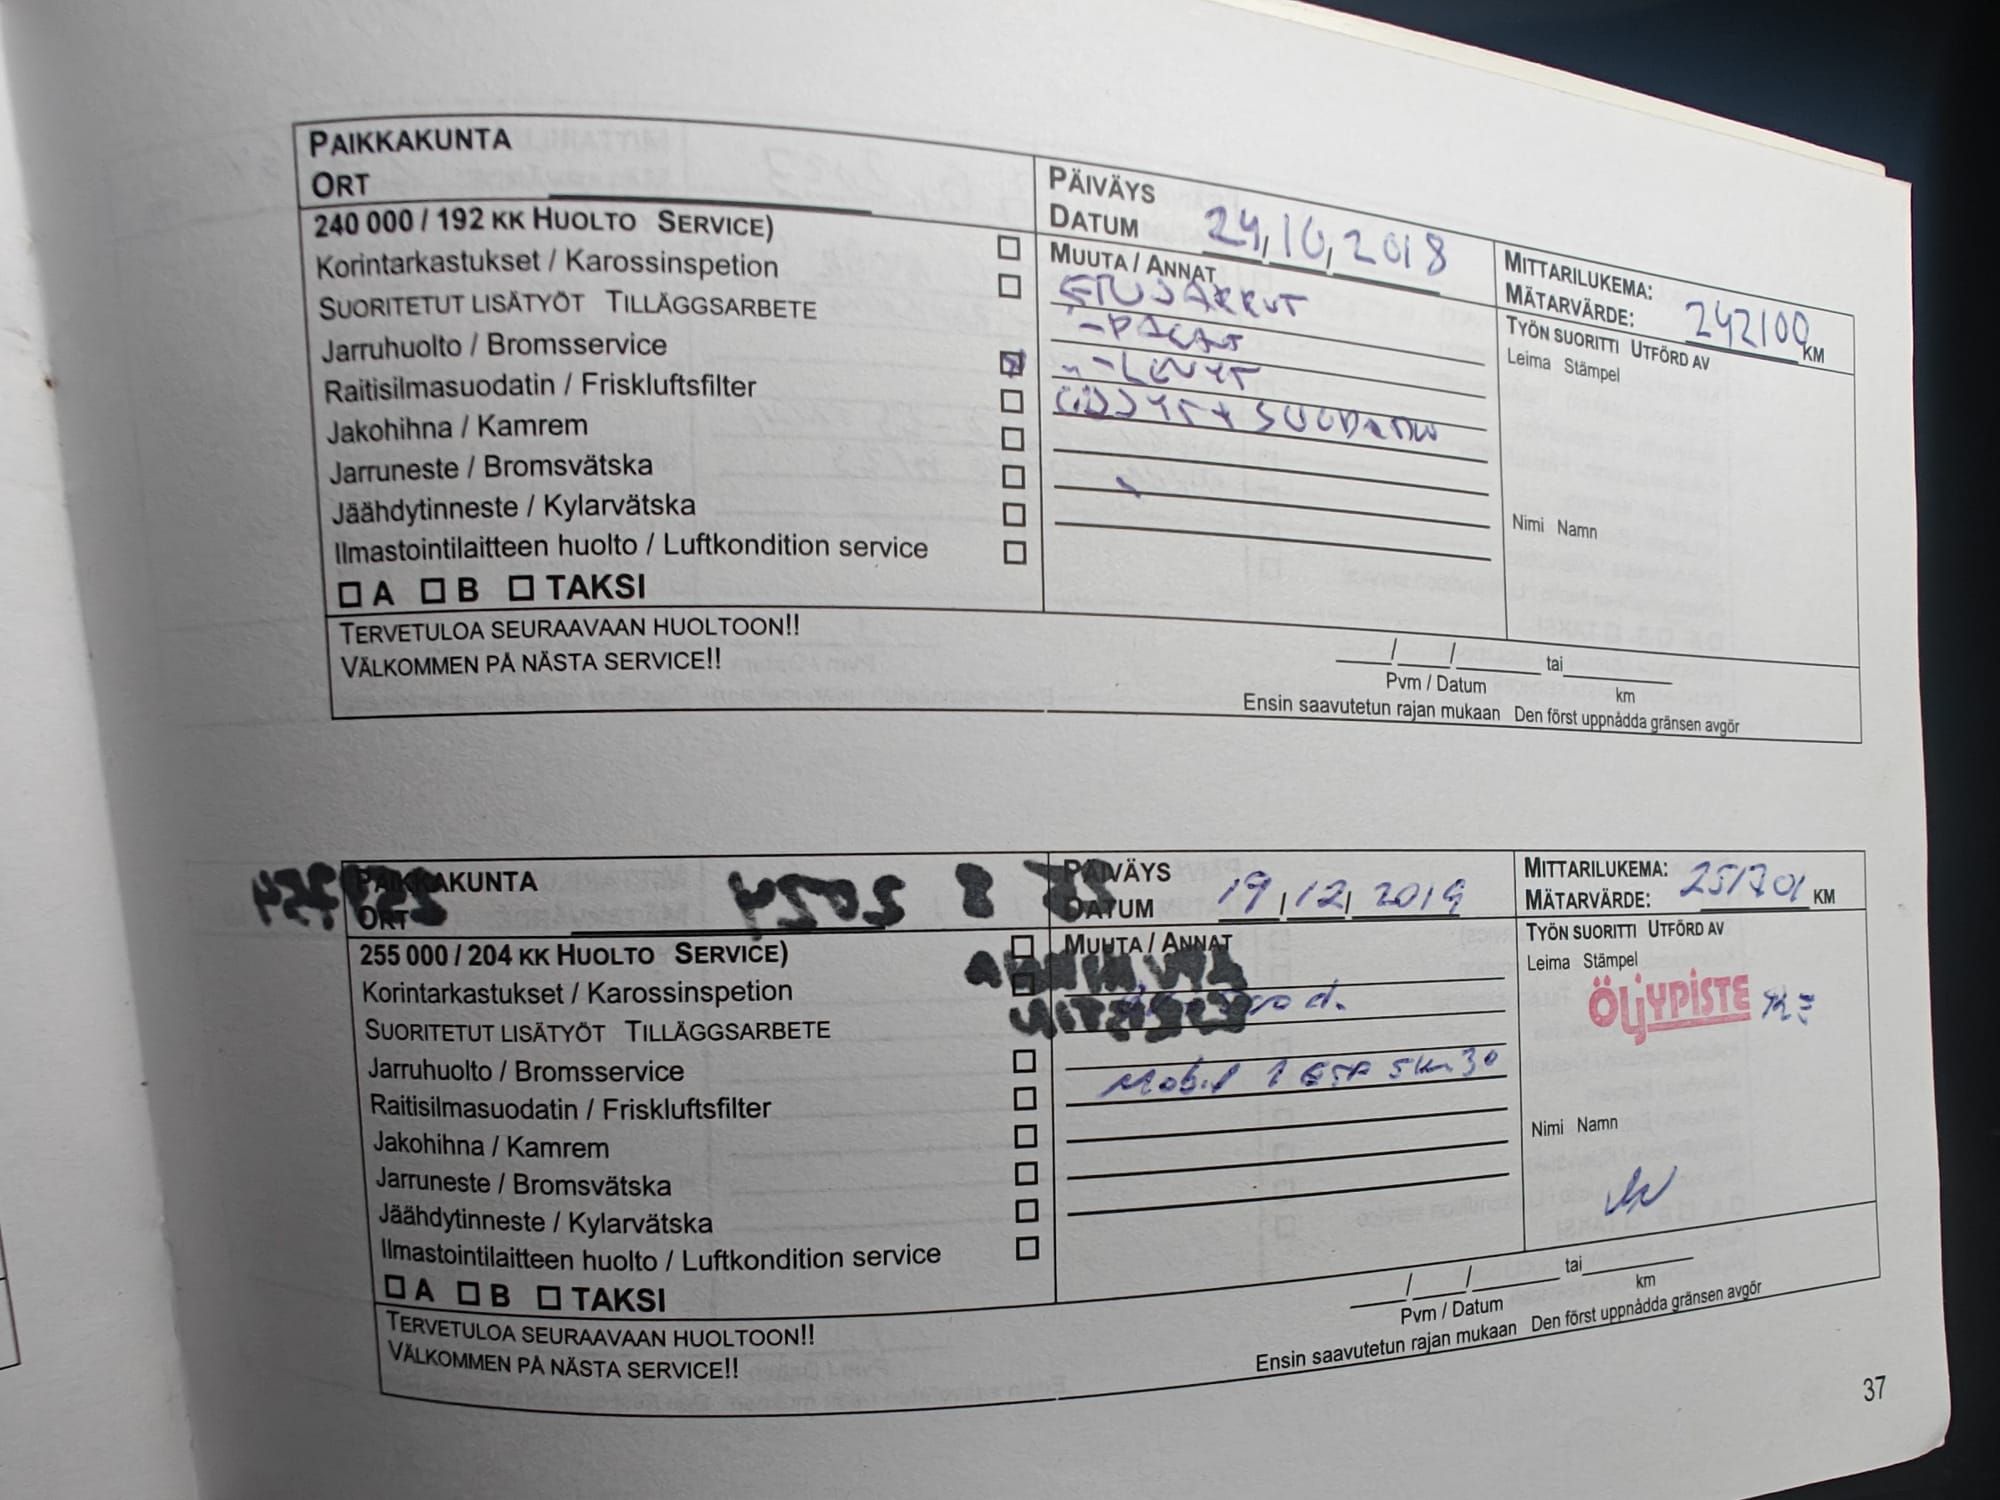 PAIKKAKUNTA
ORT
PÄIVÄYS
DATUM 24, 10, 2018
MITTARILUKEMA:
MÄTARVÄRDE: 242100 KM
240 000 / 192 KK HUOLTO SERVICE)
Korintarkastukset / Karossinspetion
SUORITETUT LISÄTYÖT TILLÄGGSARBETE
Jarruhuolto / Bromsservice
Raitisilmasuodatin / Friskluftsfilter
Jakohihna / Kamrem
Jarruneste / Bromsvätska
Jäähdytinneste / Kylarvätska
Ilmastointilaitteen huolto / Luftkondition service
A B TAKSI
MUUTA / ANNAT
ETUJARRUT
"-PALAT
"-LEVYT
ÖLJYT + SUODATIN
TYÖN SUORITTI UTFÖRD AV
Leima Stämpel
Nimi Namn
TERVETULOA SEURAAVAAN HUOLTOON!!
VÄLKOMMEN PÅ NÄSTA SERVICE!!
/ / tai
Pvm / Datum km
Ensin saavutetun rajan mukaan Den först uppnådda gränsen avgör
PAIKKAKUNTA
ORT
PÄIVÄYS
DATUM 19 / 12 / 2019
MITTARILUKEMA:
MÄTARVÄRDE: 251701 KM
255 000 / 204 KK HUOLTO SERVICE)
Korintarkastukset / Karossinspetion
SUORITETUT LISÄTYÖT TILLÄGGSARBETE
Jarruhuolto / Bromsservice
Raitisilmasuodatin / Friskluftsfilter
Jakohihna / Kamrem
Jarruneste / Bromsvätska
Jäähdytinneste / Kylarvätska
Ilmastointilaitteen huolto / Luftkondition service
A B TAKSI
MUUTA / ANNAT
Mobil 1 ESP 5w30
TYÖN SUORITTI UTFÖRD AV
Leima Stämpel
ÖLJYPISTE
Nimi Namn
TERVETULOA SEURAAVAAN HUOLTOON!!
VÄLKOMMEN PÅ NÄSTA SERVICE!!
/ / tai
Pvm / Datum km
Ensin saavutetun rajan mukaan Den först uppnådda gränsen avgör
37